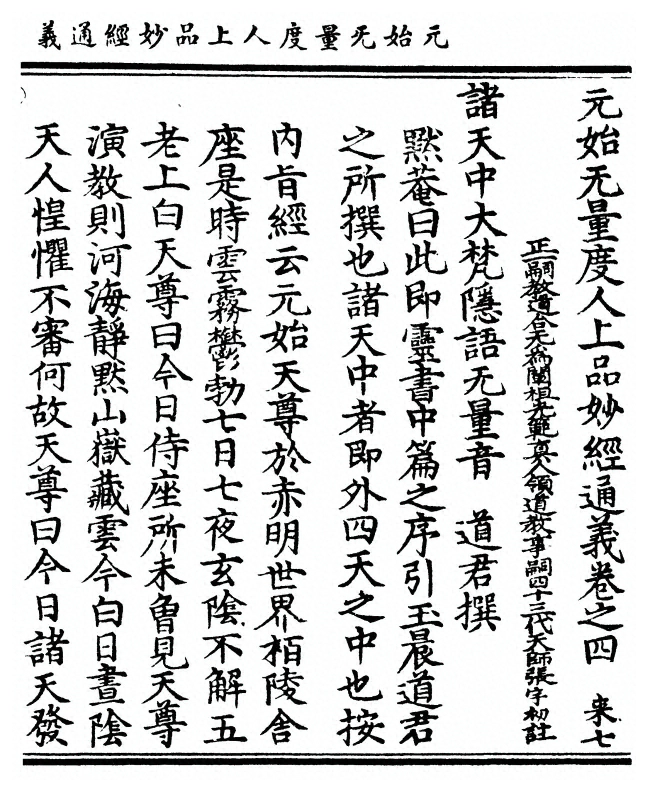 元始无量度人上品妙經通義
元始无量度人上品妙經通義卷之四　来七
正一嗣教道合无爲闡祖光範真人領道教事嗣四十三代天師張宇初註
諸天中大梵隱語无量音　道君撰
黙菴曰此即靈書中篇之序引玉晨道君
之所撰也諸天中者即外四天之中也按
内旨經云元始天尊於赤明世界栢陵舎
座是時雲霧鬱勃七日七夜玄隂不解五
老上白天尊曰今日侍座所未曾見天尊
演教則河海靜黙山嶽藏雲今白日晝隂
天人惶懼不審何故天尊曰今日諸天發